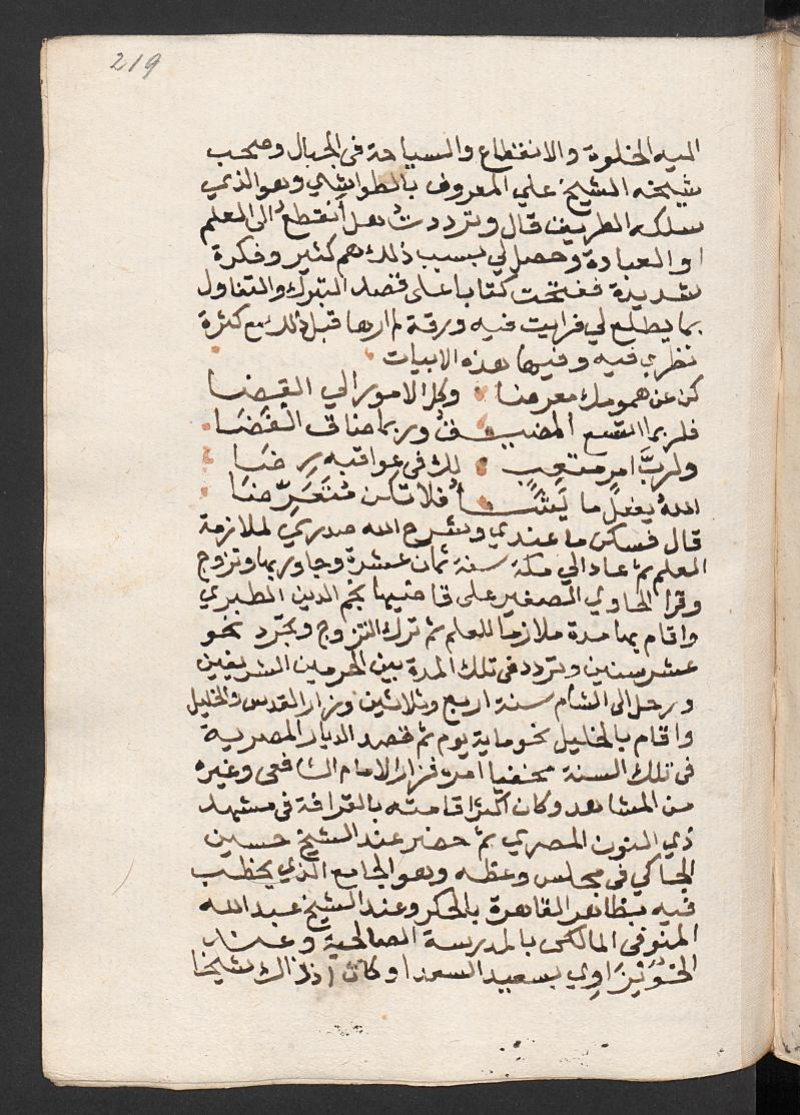 219
اليه الخلوة والانقطاع والسياحة فى الجبال وصحب
شيخه الشيخ علي المعروف بالطواشي وهو الذي
سلكه الطريق قال وترددتُ هل أنقطعُ الى العلم
او العبادة وحصل لي بسبب ذلك هم كثير وفكرة
شديدة ففتحت كتابا على قصد التبرك والتفاول
بما يطلع لي فرايت فيه ورقة لم ارها قبل ذلك مع كثرة
نظري فيه وفيها هذه الابيات
كن عن همومك معرضا وكل الامور الي القضا
فلربما اتسع المضيق وربما ضاق الفضا
ولربَّ امر متعب لك فى عواقبه رضَا
اللهُ يفعل ما يَشَا فلا تكن مُتَعَرِّضا
قال فسكن ما عندي وشرح الله صدري لملازمة
العلم ثم عاد الي مكة سنة ثمان عشرة وجاور بها وتزوج
وقرا الحاوي الصغير على قاضيها نجم الدين الطبري
واقام بها مدة ملازما للعلم ثم ترك التزوج وتجرّد نحو
عشر سنين وتردد فى تلك المدة بين الحرمين الشريفين
ورحل الى الشام سنة اربع وثلاثين وزار القدس والخليل
واقام بالخليل نحو ماية يوم ثم قصد الديار المصرية
فى تلك السنة مخفيا امره فزار الامام الشافعى وغيره
من المشاهد وكان اكثر اقامته بالقرافة فى مشهد
ذي النون المصري ثم حضر عند الشيخ حسين
الجاكي فى مجلس وعظه وهو الجامع الذي يخطب
فيه بظاهر القاهرة بالحكر وعند الشيخ عبد الله
المنوفى المالكى بالمدرسة الصالحية وعند
بسعيد السعدا وكان اذ ذاك شيخا